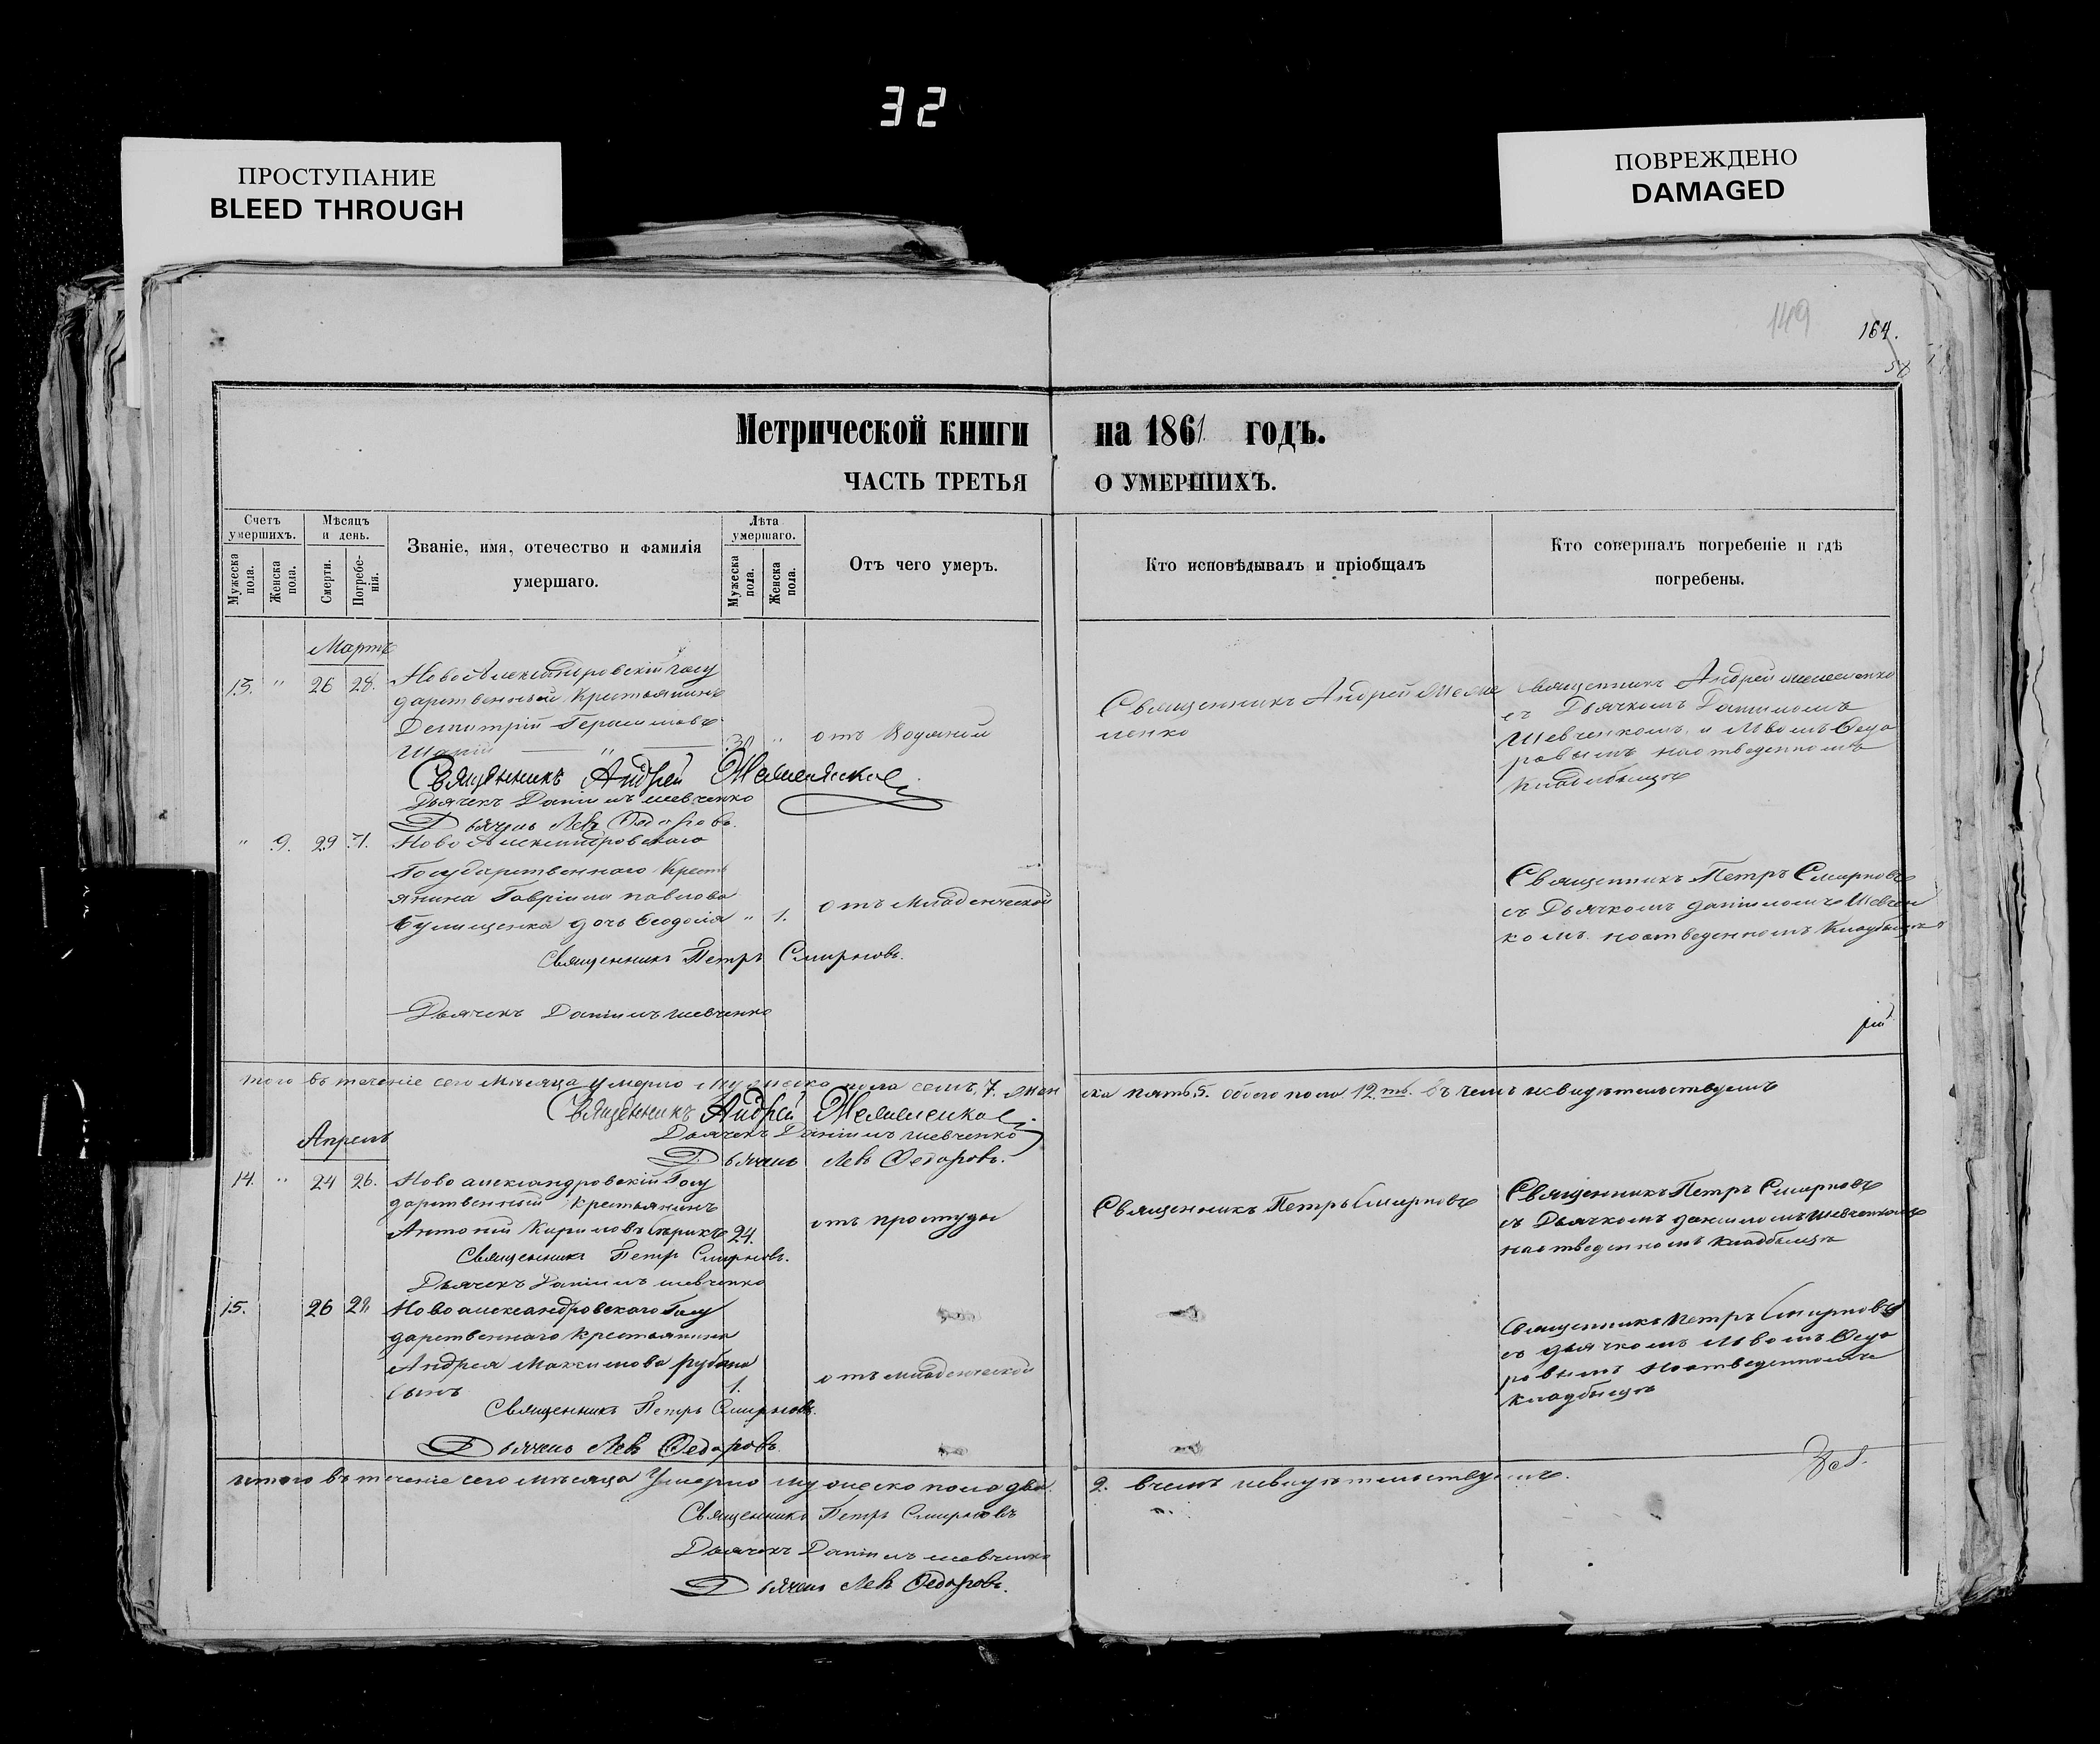 32
ПРОСТУПАНИЕ
BLEED THROUGH
ПОВРЕЖДЕНО
DAMAGED
149
164.
58
Метрической книги на 1861 годъ.
ЧАСТЬ ТРЕТЬЯ О УМЕРШИХЪ.
Счетъ умершихъ.
Мужеска пола.
Женска пола.
Мѣсяцъ и день.
Смерти.
Погребенія.
Званіе, имя, отечество и фамилія
умершаго.
Лѣта умершаго.
Мужеска пола.
Женска пола.
Отъ чего умеръ.
Кто исповѣдывалъ и пріобщалъ
Кто совершалъ погребеніе и гдѣ
погребены.
Мартъ
13. " 26 28.
Новоалександровскій госу
дарственный Крестьянинъ
Димитрій Герасимовъ
"
отъ Водяной
Священникъ Андрей
ленко
Священникъ Андрей
съ Дьячкомъ Даніиломъ
Шевченкомъ и Львомъ Федо
ровымъ наотведенномъ
Кладбищѣ
Священникъ Андрей
Дьячекъ Даніилъ шевченко
Дьячекъ Левъ Федоровъ.
" 9. 29 31.
Новоалександровскаго
Государственнаго Кресть
янина Гавріила павлова
дочь Феодосія " 1.
отъ Младенческой
Священникъ Петръ Смирновъ
съ Дьячкомъ даніиломъ Шевчен
комъ наотведенномъ Кладбищѣ
Священникъ Петръ Смирновъ.
Дьячекъ Даніилъ шевченко
того въ теченіе сего Мѣсяца умерло Мужеско пола семъ, 7. жен
ска пять, 5. обоего пола 12.ть. въ чемъ исвидѣтельствуемъ
Священникъ Андрей
Дьячекъ Даніилъ шевченко
Дьячекъ Левъ Федоровъ.
Апрель
14. " 24 26.
Новоалександровскій Госу
дарственный крестьянинъ
Антоній Кириловъ 24.
отъ простуды
Священникъ Петръ Смирновъ
Священникъ Петръ Смирновъ
съ Дьячкомъ даниломъ Шевченкомъ
наотведенномъ кладбищѣ
Священникъ Петръ Смирновъ.
Дьячекъ Даніилъ шевченко
15. 26 28.
Новоалександровскаго Госу
дарственнаго крестьянина
Андрея Максимова рубана
сынъ 1.
отъ младенческой
Священникъ Петръ Смирновъ
съ дьячкомъ Львомъ Федо
ровымъ наотведенномъ
кладбищѣ
Священникъ Петръ Смирновъ.
Дьячекъ Левъ Федоровъ.
итого въ теченіе сего мѣсяца Умерло мужеско пола два.
2. вчемъ исвидѣтельствуемъ.
Священникъ Петръ Смирновъ
Дьячекъ Даніилъ шевченко
Дьячекъ Левъ Федоровъ.